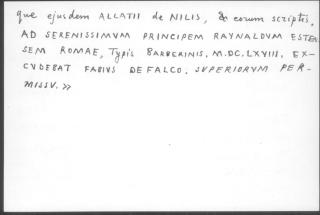 que ejusdem ALLATII de NILIS, & eorum scriptis,
AD SERENISSIMVM PRINCIPEM RAYNALDVM ESTEN
SEM ROMAE, Typis BARBERINIS. M.DC.LXVIII, EX-
CVDEBAT FABIVS DE FALCO. SUPERIORVM PER-
MISSV. »